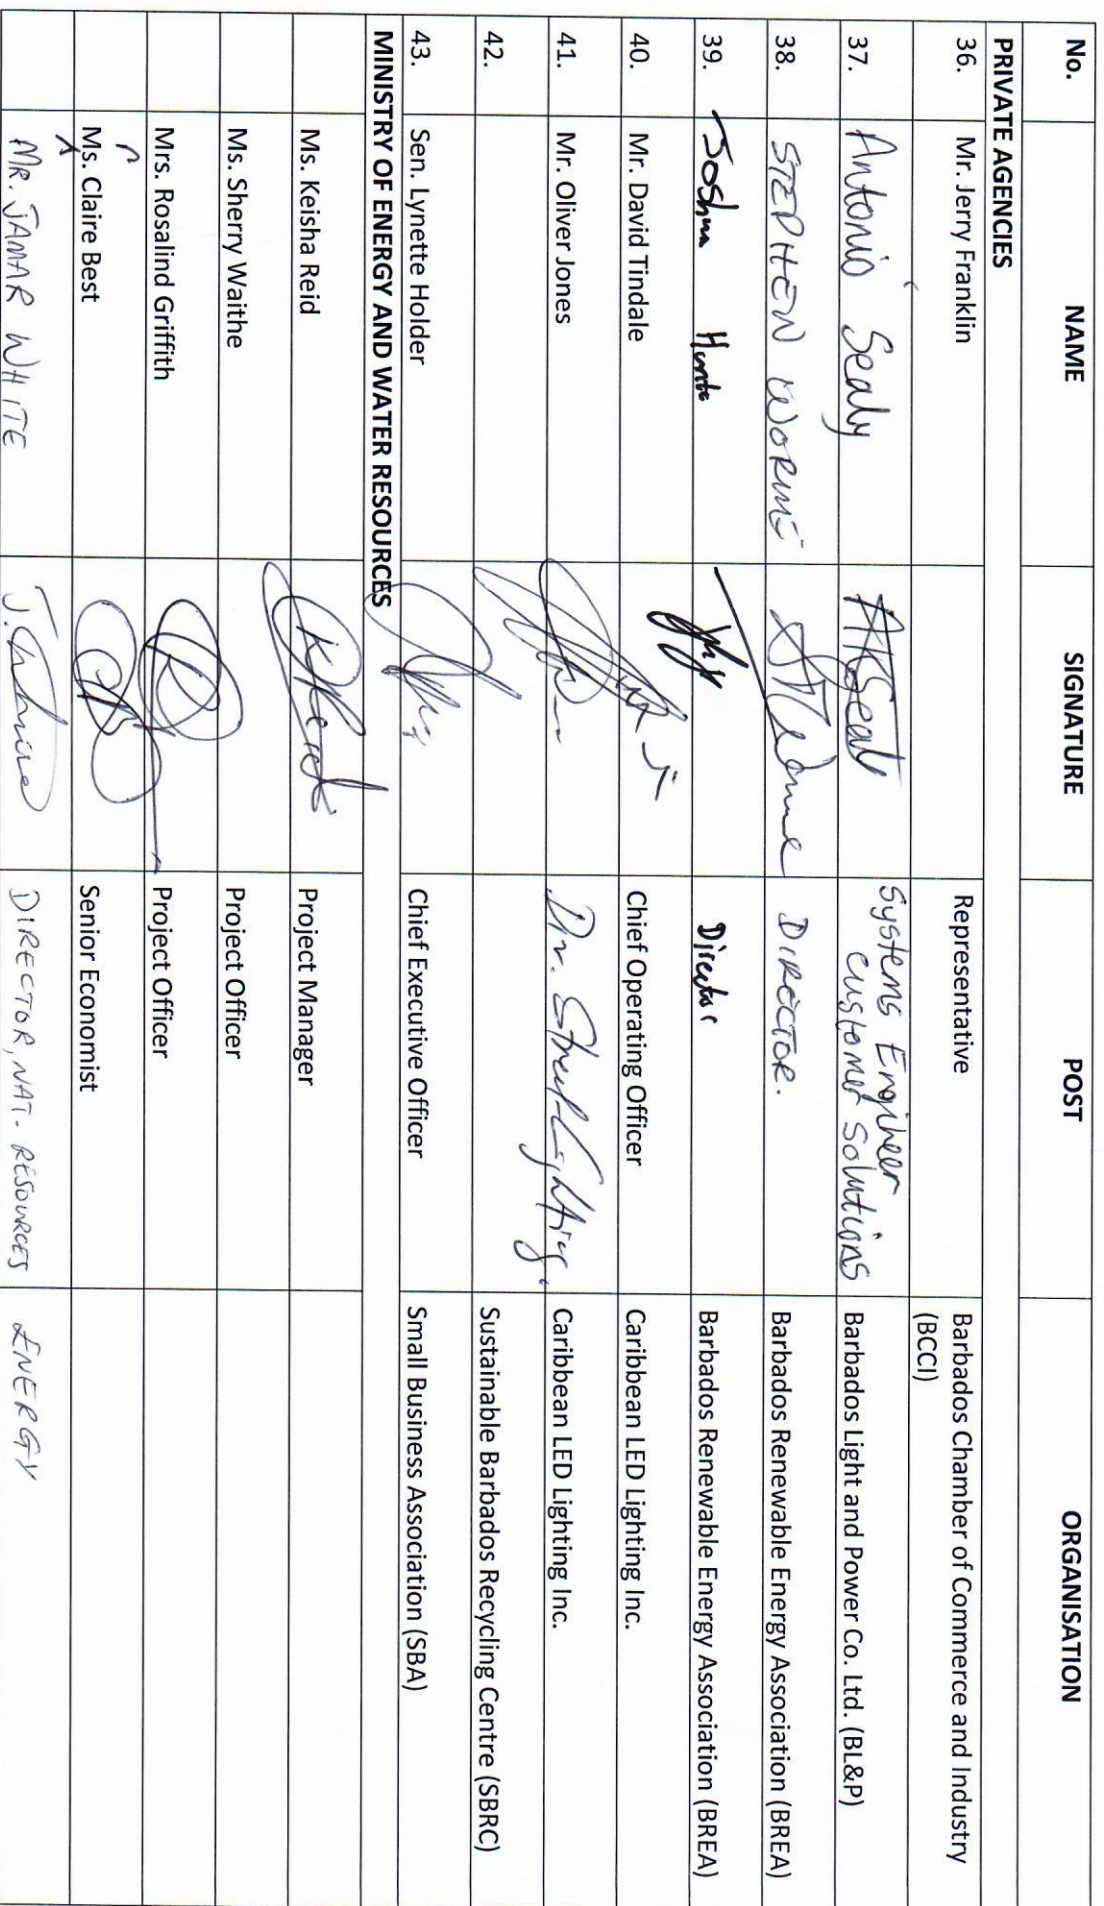 No. NAME SIGNATURE POST ORGANISATION
PRIVATE AGENCIES
36. Mr. Jerry Franklin Representative Barbados Chamber of Commerce and Industry
(BCCI)
37. Antonio Sealy Systems Engineer Barbados Light and Power Co. Ltd. (BL&P)
Customer Solutions
38. STEPHEN WORME DIRECTOR. Barbados Renewable Energy Association (BREA)
39. Joshua Hunte Director Barbados Renewable Energy Association (BREA)
40. Mr. David Tindale Chief Operating Officer Caribbean LED Lighting Inc.
41. Mr. Oliver Jones Dir. Street Lighting. Caribbean LED Lighting Inc.
42. Sustainable Barbados Recycling Centre (SBRC)
43. Sen. Lynette Holder Chief Executive Officer Small Business Association (SBA)
MINISTRY OF ENERGY AND WATER RESOURCES
Ms. Keisha Reid Project Manager
Ms. Sherry Waithe Project Officer
Mrs. Rosalind Griffith Project Officer
Ms. Claire Best Senior Economist
MR. JAMAR WHITE DIRECTOR, NAT. RESOURCES ENERGY